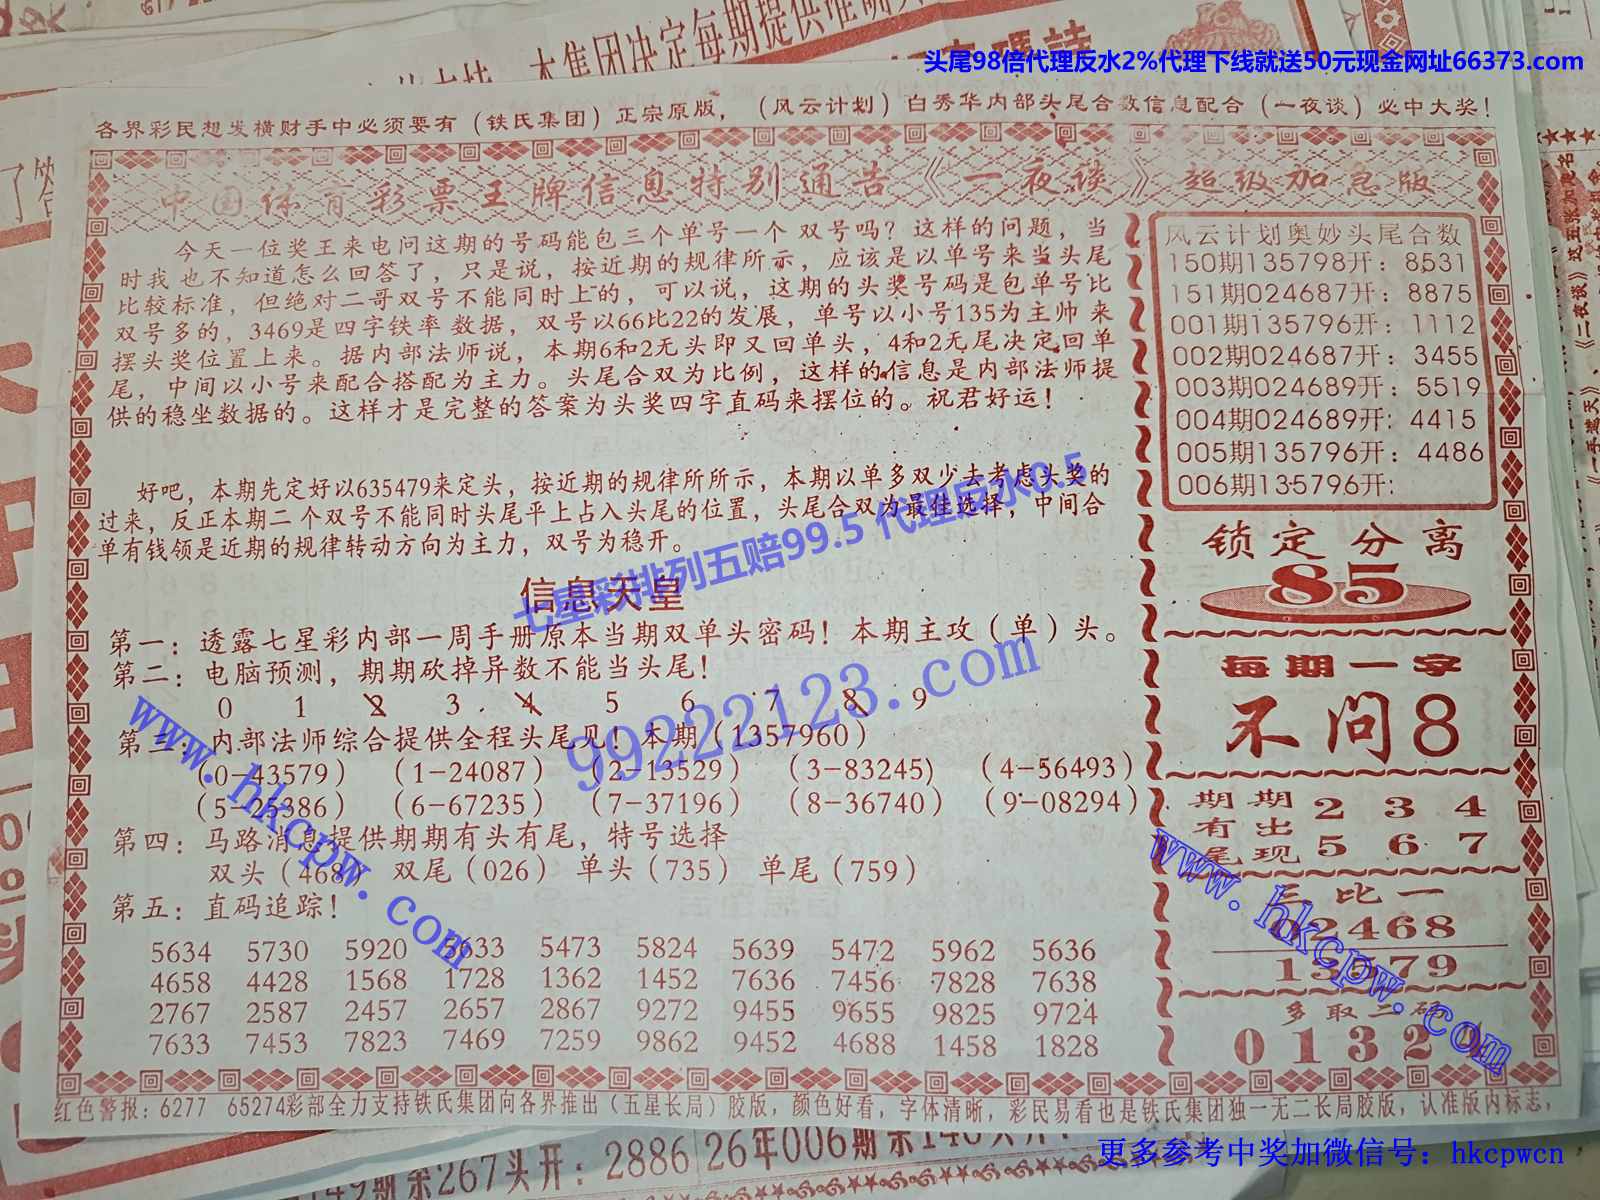 本集团决定每期提供准确
头尾98倍代理反水2%代理下线就送50元现金网址66373.com
各界彩民想发横财手中必须要有（铁氏集团）正宗原版，（风云计划）白秀华内部头尾合数信息配合（一夜谈）必中大奖！
中国体育彩票王牌信息特别通告《一夜谈》超级加急版
今天一位奖王来电问这期的号码能包三个单号一个 双号吗？这样的问题，当
时我 也不知道怎么回答了，只是说，按近期的规律所示，应该是以单号来当头尾
比较标准，但绝对二哥双号不能同时上的，可以说，这期的头奖号码是包单号比
双号多的，3469是四字铁率数据，双号以66比22的发展，单号以小号135为主帅 来
摆头奖位置上来。据内部法师说，本期6和2无头即又回单头，4和2无尾决定回单
尾，中间以小号来配合搭配为主力。头尾合双为比例，这样的信息是内部法师提
供的稳坐数据的。这样才是完整的答案为头奖四字直码来摆位的。祝君好运！
好吧，本期先定好以635479来定头，按近期的规律所所示，本期以单多双少去考虑头奖的
过来，反正本期二个双号不能同时头尾平上占入头尾的位置，头尾合双为最佳选择，中间合
单有钱领是近期的规律转动方向为主力，双号为稳开。
七星彩排列五赔99.5 代理反水0.5
信息天皇
第一：透露七星彩内部一周手册原本当期双单头密码！本期主攻（单）头。
第二：电脑预测，期期砍掉异数不能当头尾！
0 1 2 3 4 5 6 7 8 9
99222123.com
第三：内部法师综合提供全程头尾见！本期（1357960）
（0-43579） （1-24087） （2-13529） （3-83245） （4-56493）
（5-25386） （6-67235） （7-37196） （8-36740） （9-08294）
第四：马路消息提供期期有头有尾，特号选择
双头（468） 双尾（026） 单头（735） 单尾（759）
第五：直码追踪！
5634 5730 5920 5633 5473 5824 5639 5472 5962 5636
4658 4428 1568 1728 1362 1452 7636 7456 7828 7638
2767 2587 2457 2657 2867 9272 9455 9655 9825 9724
7633 7453 7823 7469 7259 9862 9452 4688 1458 1828
www.hkcpw.com
风云计划奥妙头尾合数
150期135798开：8531
151期024687开：8875
001期135796开：1112
002期024687开：3455
003期024689开：5519
004期024689开：4415
005期135796开：4486
006期135796开：
锁定分离
85
每期一字
不问8
期期 2 3 4
有出
尾现 5 6 7
三比一
02468
13579
多取二码
0 1 3 2 4
www.hkcpw.com
红色警报：6277 65274彩部全力支持铁氏集团向各界推出（五星长局）胶版，颜色好看，字体清晰，彩民易看也是铁氏集团独一无二长局胶版，认准版内标志，
149期杀267头开：2886
26年006期杀140头开：
更多参考中奖加微信号：hkcpwcn